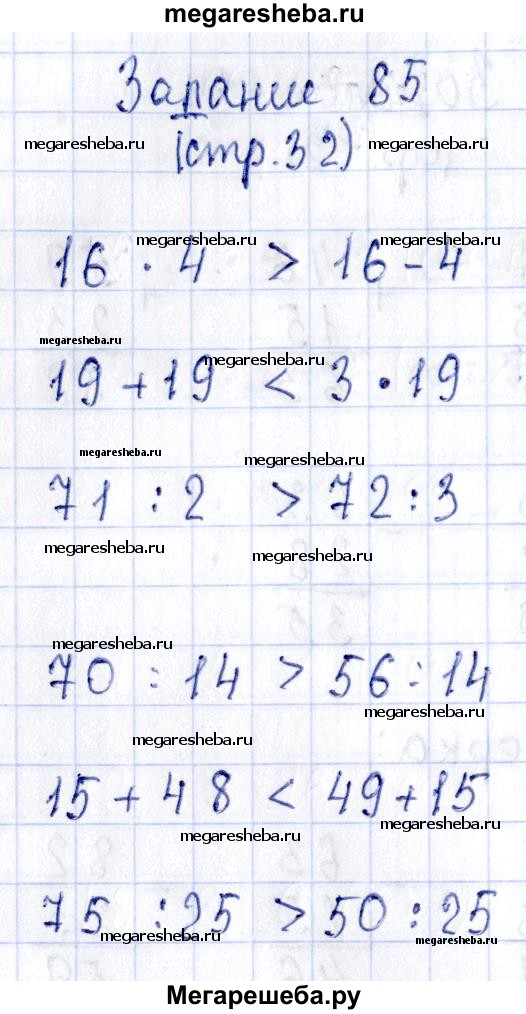 megaresheba.ru
Задание 85
megaresheba.ru megaresheba.ru
(стр. 32)
megaresheba.ru megaresheba.ru
16 · 4 > 16 - 4
megaresheba.ru megaresheba.ru
19 + 19 < 3 · 19
megaresheba.ru megaresheba.ru
71 : 2 > 72 : 3
megaresheba.ru megaresheba.ru
megaresheba.ru
70 : 14 > 56 : 14
megaresheba.ru
megaresheba.ru
15 + 48 < 49 + 15
megaresheba.ru megaresheba.ru
75 : 25 > 50 : 25
megaresheba.ru megaresheba.ru
Мегарешеба.ру